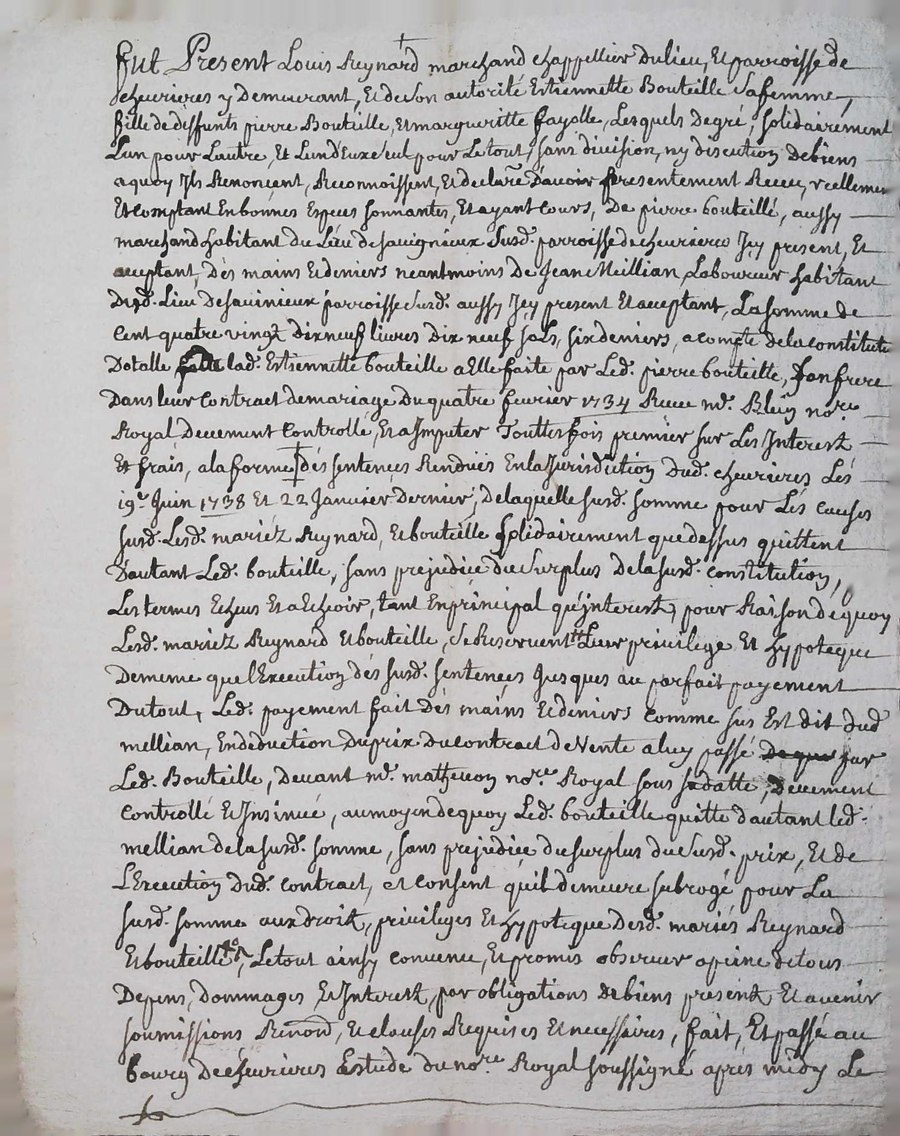 fut Present Louis Reynard marchand chappellier Dulieu, Et parroisse de
cheurieres y Demeurant, Et deson autorité Estiennette Bouteille Safemme,
fille de deffunts pierre Bouteille, Et margueritte fayolle, Lesquels Degré, solidairement
Lun pour Lautre, Et Lund'Eux seul pour Letout, sans division, ny discution Debiens
aquoy Ils Renoncent, Reconnoissent, Et declare Davoir presentement Receu, reellement
Et comptant Enbonnes Especes sonnantes, Et ayant cours, De pierre bouteille, aussy
marchand habitant du Lieu de sauignieux susd. parroisse de cheurieres Icy present, Et
acceptant, des mains Et deniers neantmoins De Jeane Meillian, Laboureur habitant
Dud. Lieu De sauinieux parroisse susd. aussy Icy present Et acceptant, La somme de
Cent quatre vingt Dix neuf livres Dix neuf sols, six deniers, acompte dela constitution
Dotalle lad. Estiennette bouteille a Elle faite par Led. pierre bouteille, son frere
Dans leur Contract demariage Du quatre fevrier 1734 Receu me. Blein nore
Royal, Deuement Controllé, Et a Imputer Touttesfois premier sur Les Interest
Et frais, ala forme des sentences Renduës En la Jurisdiction dud. cheurieres Lés
19e Juin 1738 Et 22 Janvier Dernier, delaquelle susd. somme pour Lés causes
susd. Lesd. mariéz Reynard, Et bouteille solidairement que dessus quittent
D'autant Led. bouteille, sans prejudice du surplus de la susd. constitution,
Les termes Echeus Et a Echeoir, tant En principal qu'jnterest, pour Raison dequoy
Lesd. mariéz Reynard Et bouteille, se Reservent Leur privilege Et hypoteque
Dememe que l'Execution dés susd. sentences Jusques au parfait payement
Du tout, Led. payement fait Dés mains Et deniers comme sus Est dit dud
mellian, Endeduction du prix du contract de Vente aluy passé par
Led. Bouteille, Devant me. mathevon nore Royal sous sadatte, deuement
Controllé Et Insinué, au moyen dequoy Led. bouteille quitte d'autant led.
mellian de la susd. somme, sans prejudice du surplus du susd. prix, Et de
L'Execution Dud. contract, et Consent qu'il demeure subrogé pour La
susd. somme aux droit, privileges Et hypoteque Desd. mariés Reynard
Et bouteille, Le tout ainsy convenu, Et promis observer apeine de tous
Depens, Dommages Et Interest, par obligations de biens present, Et avenir
soumissions Renond, Et clauses Requises Et necessaires, fait, Et passé au
bourg de cheurieres Estude du nore Royal soussigné aprés midy Le